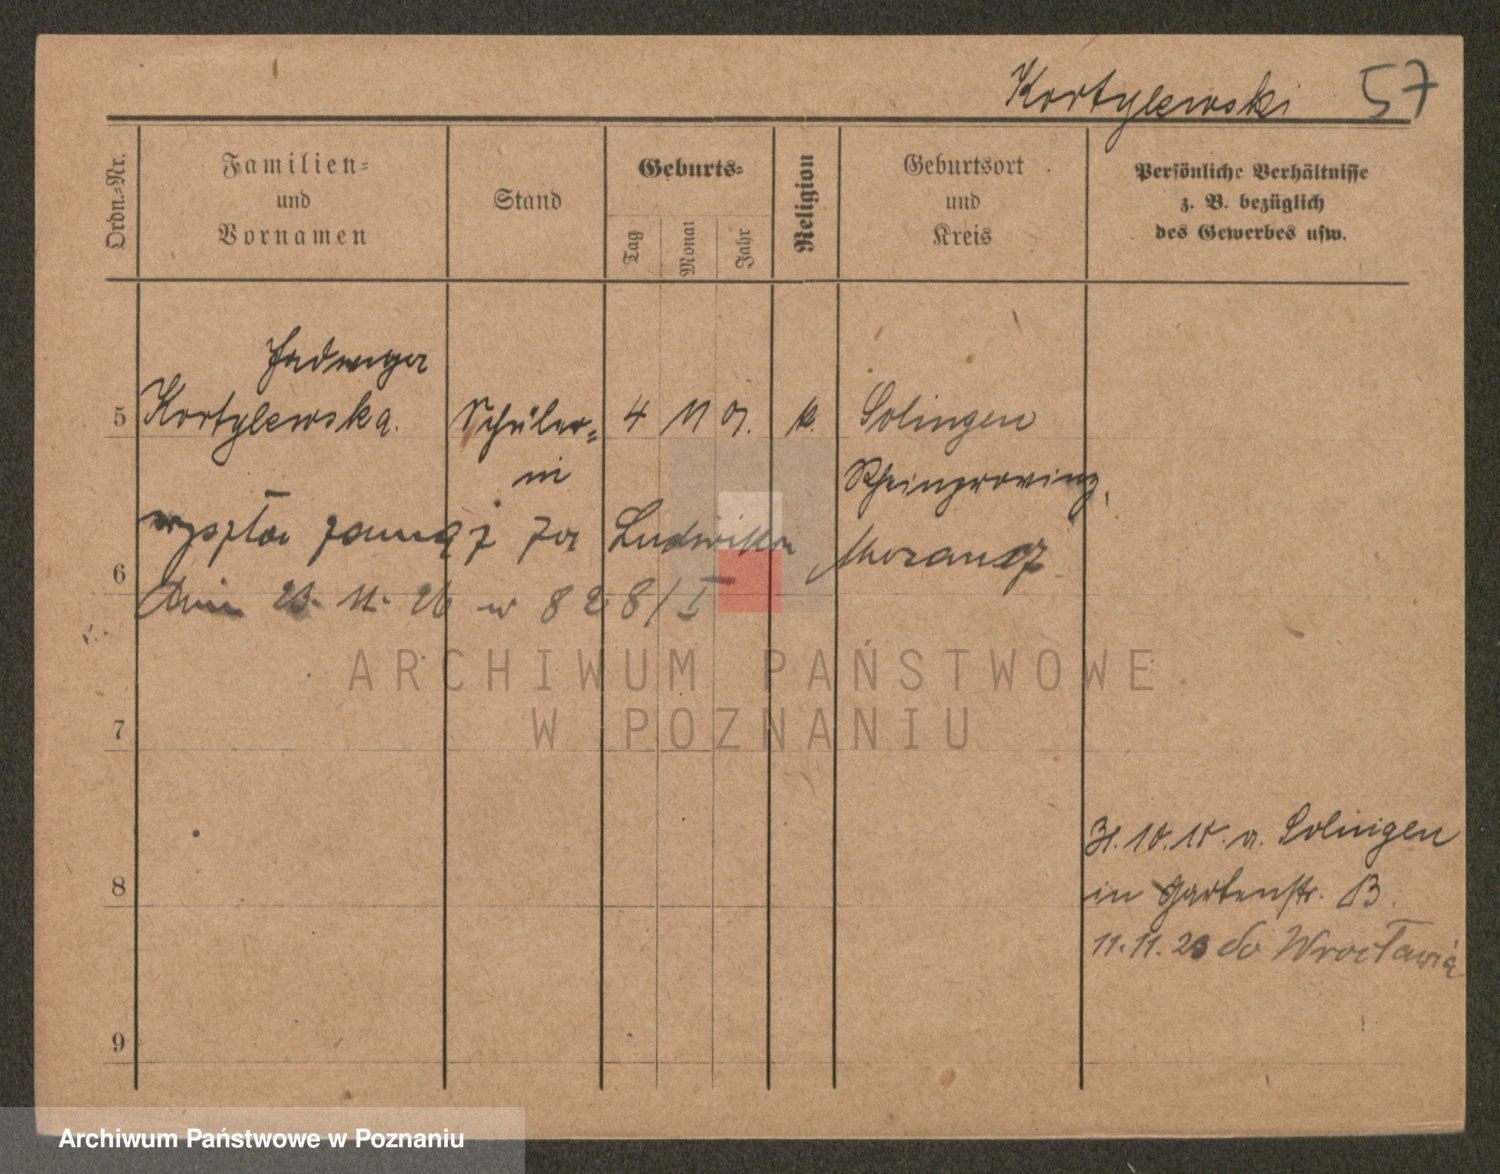 Kortylewski 57
Ordn.-Nr.
Familien-
und
Vornamen
Stand
Geburts-
Tag
Monat
Jahr
Religion
Geburtsort
und
Kreis
Persönliche Verhältnisse
z. B. bezüglich
des Gewerbes usw.
Jadwiga
5 Kortylewska. Schüler- 4 11 07. k. Solingen
in Rheinprovinz,
wyszła zamąż za Ludwika
6
dnia 23. 11. 26 w 828/I
ARCHIWUM PAŃSTWOWE
W POZNANIU
7
10. a. Solingen
8 in Gartenstr. 13.
11.11.23 do Wrocławia
9
Archiwum Państwowe w Poznaniu